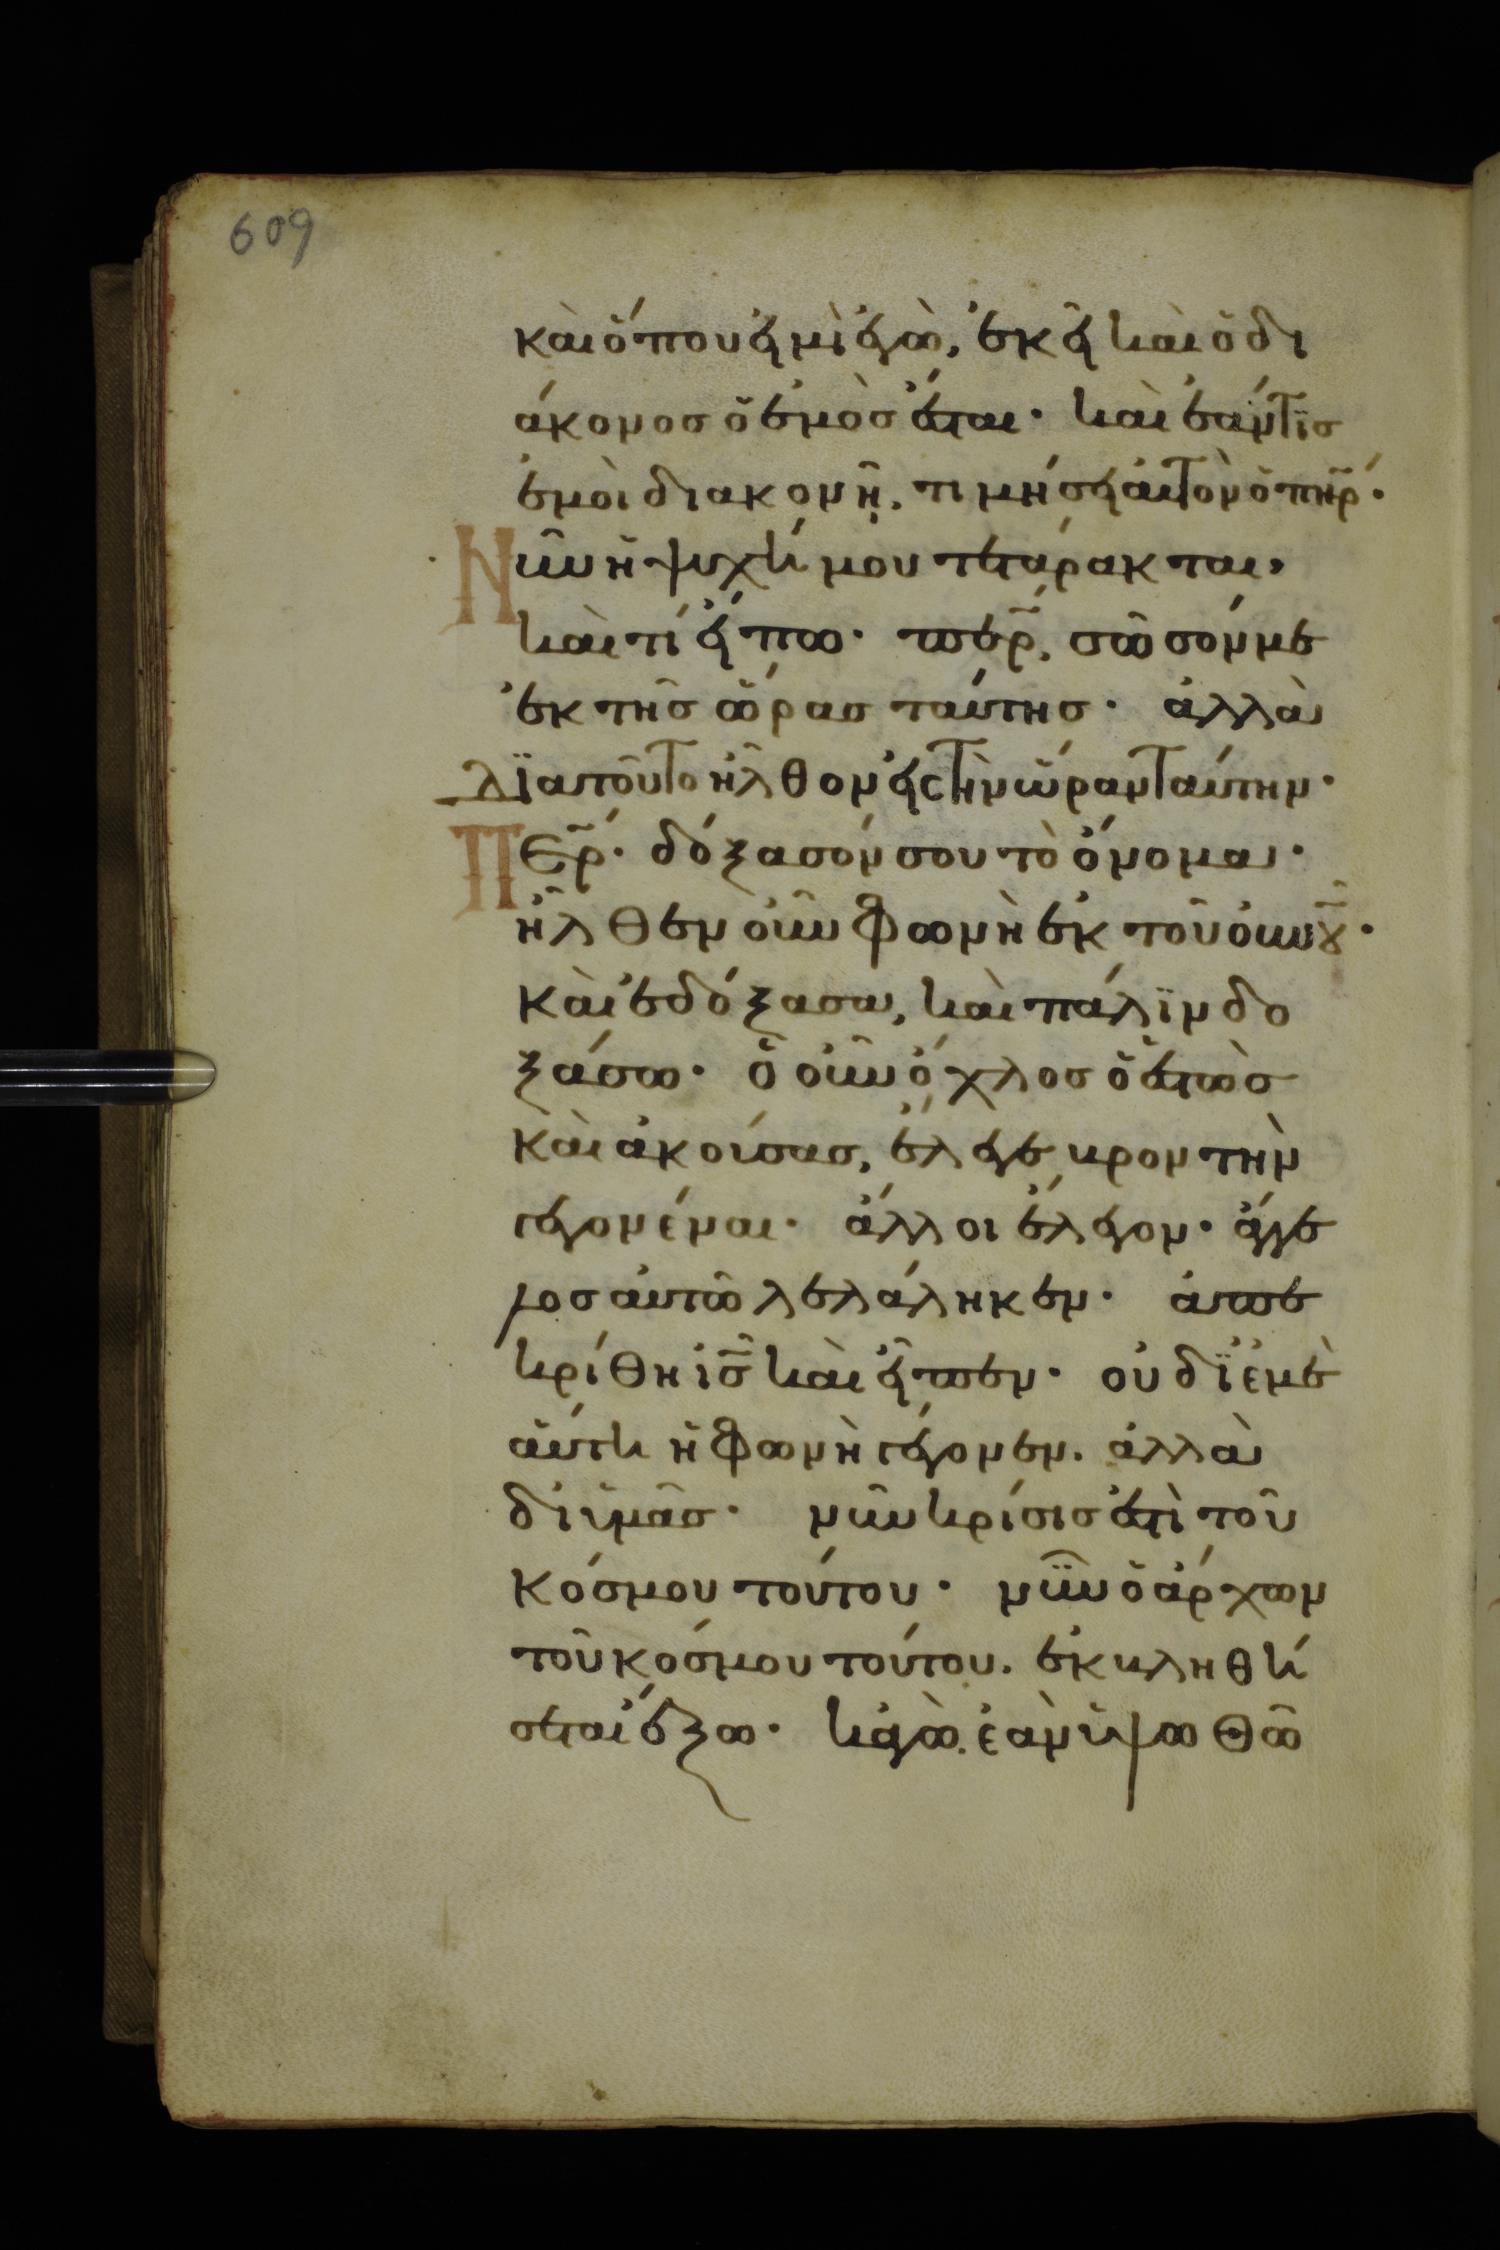 609
καὶ ὅπου εἰμὶ ἐγὼ, ἐκεῖ καὶ ὁ δι
άκονος ὁ ἐμὸς ἔσται· καὶ ἐάν τϊς
ἐμοὶ διακονῆ, τιμήσει αὐτὸν ὁ πη̃ρ·
Νῦν ἡ ψυχή μου τετάρακται,
καὶ τί εἴπω· πε̃ρ, σῶσόν με
ἐκ τῆς ὥρας ταύτης· ἀλλὰ
δϊα τοῦτο ἦλθον εἰς τὴν ὥραν ταύτην·
Πε̃ρ· δόξασόν σου τὸ ὄνομα·
ἦλθεν οὖν φωνὴ ἐκ τοῦ οὐνου̃·
καὶ ἐδόξασα, καὶ πάλϊν δο
ξάσω· ὁ οὖν ὄχλος ὁ ἑστὼς
καὶ ἀκούσας, ἔλεγε κρον τὴν
γεγονέναι· ἄλλοι ἔλεγον· ἄγγε
λος αὐτῶ λελάληκεν· ἀπε
κρίθη ἰς̃ καὶ εἶπεν· οὐ δϊ ἐμὲ
αὕτη ἡ φωνὴ γέγονεν. ἀλλὰ
δι ὑμᾶς· νῦν κρίσις ἐστὶ τοῦ
κόσμου τούτου· νῦν ὁ ἄρχων
τοῦ κόσμου τούτου. ἐκκληθή
σεται ἔξω· κἀγὼ. ἐὰν ὑψωθῶ